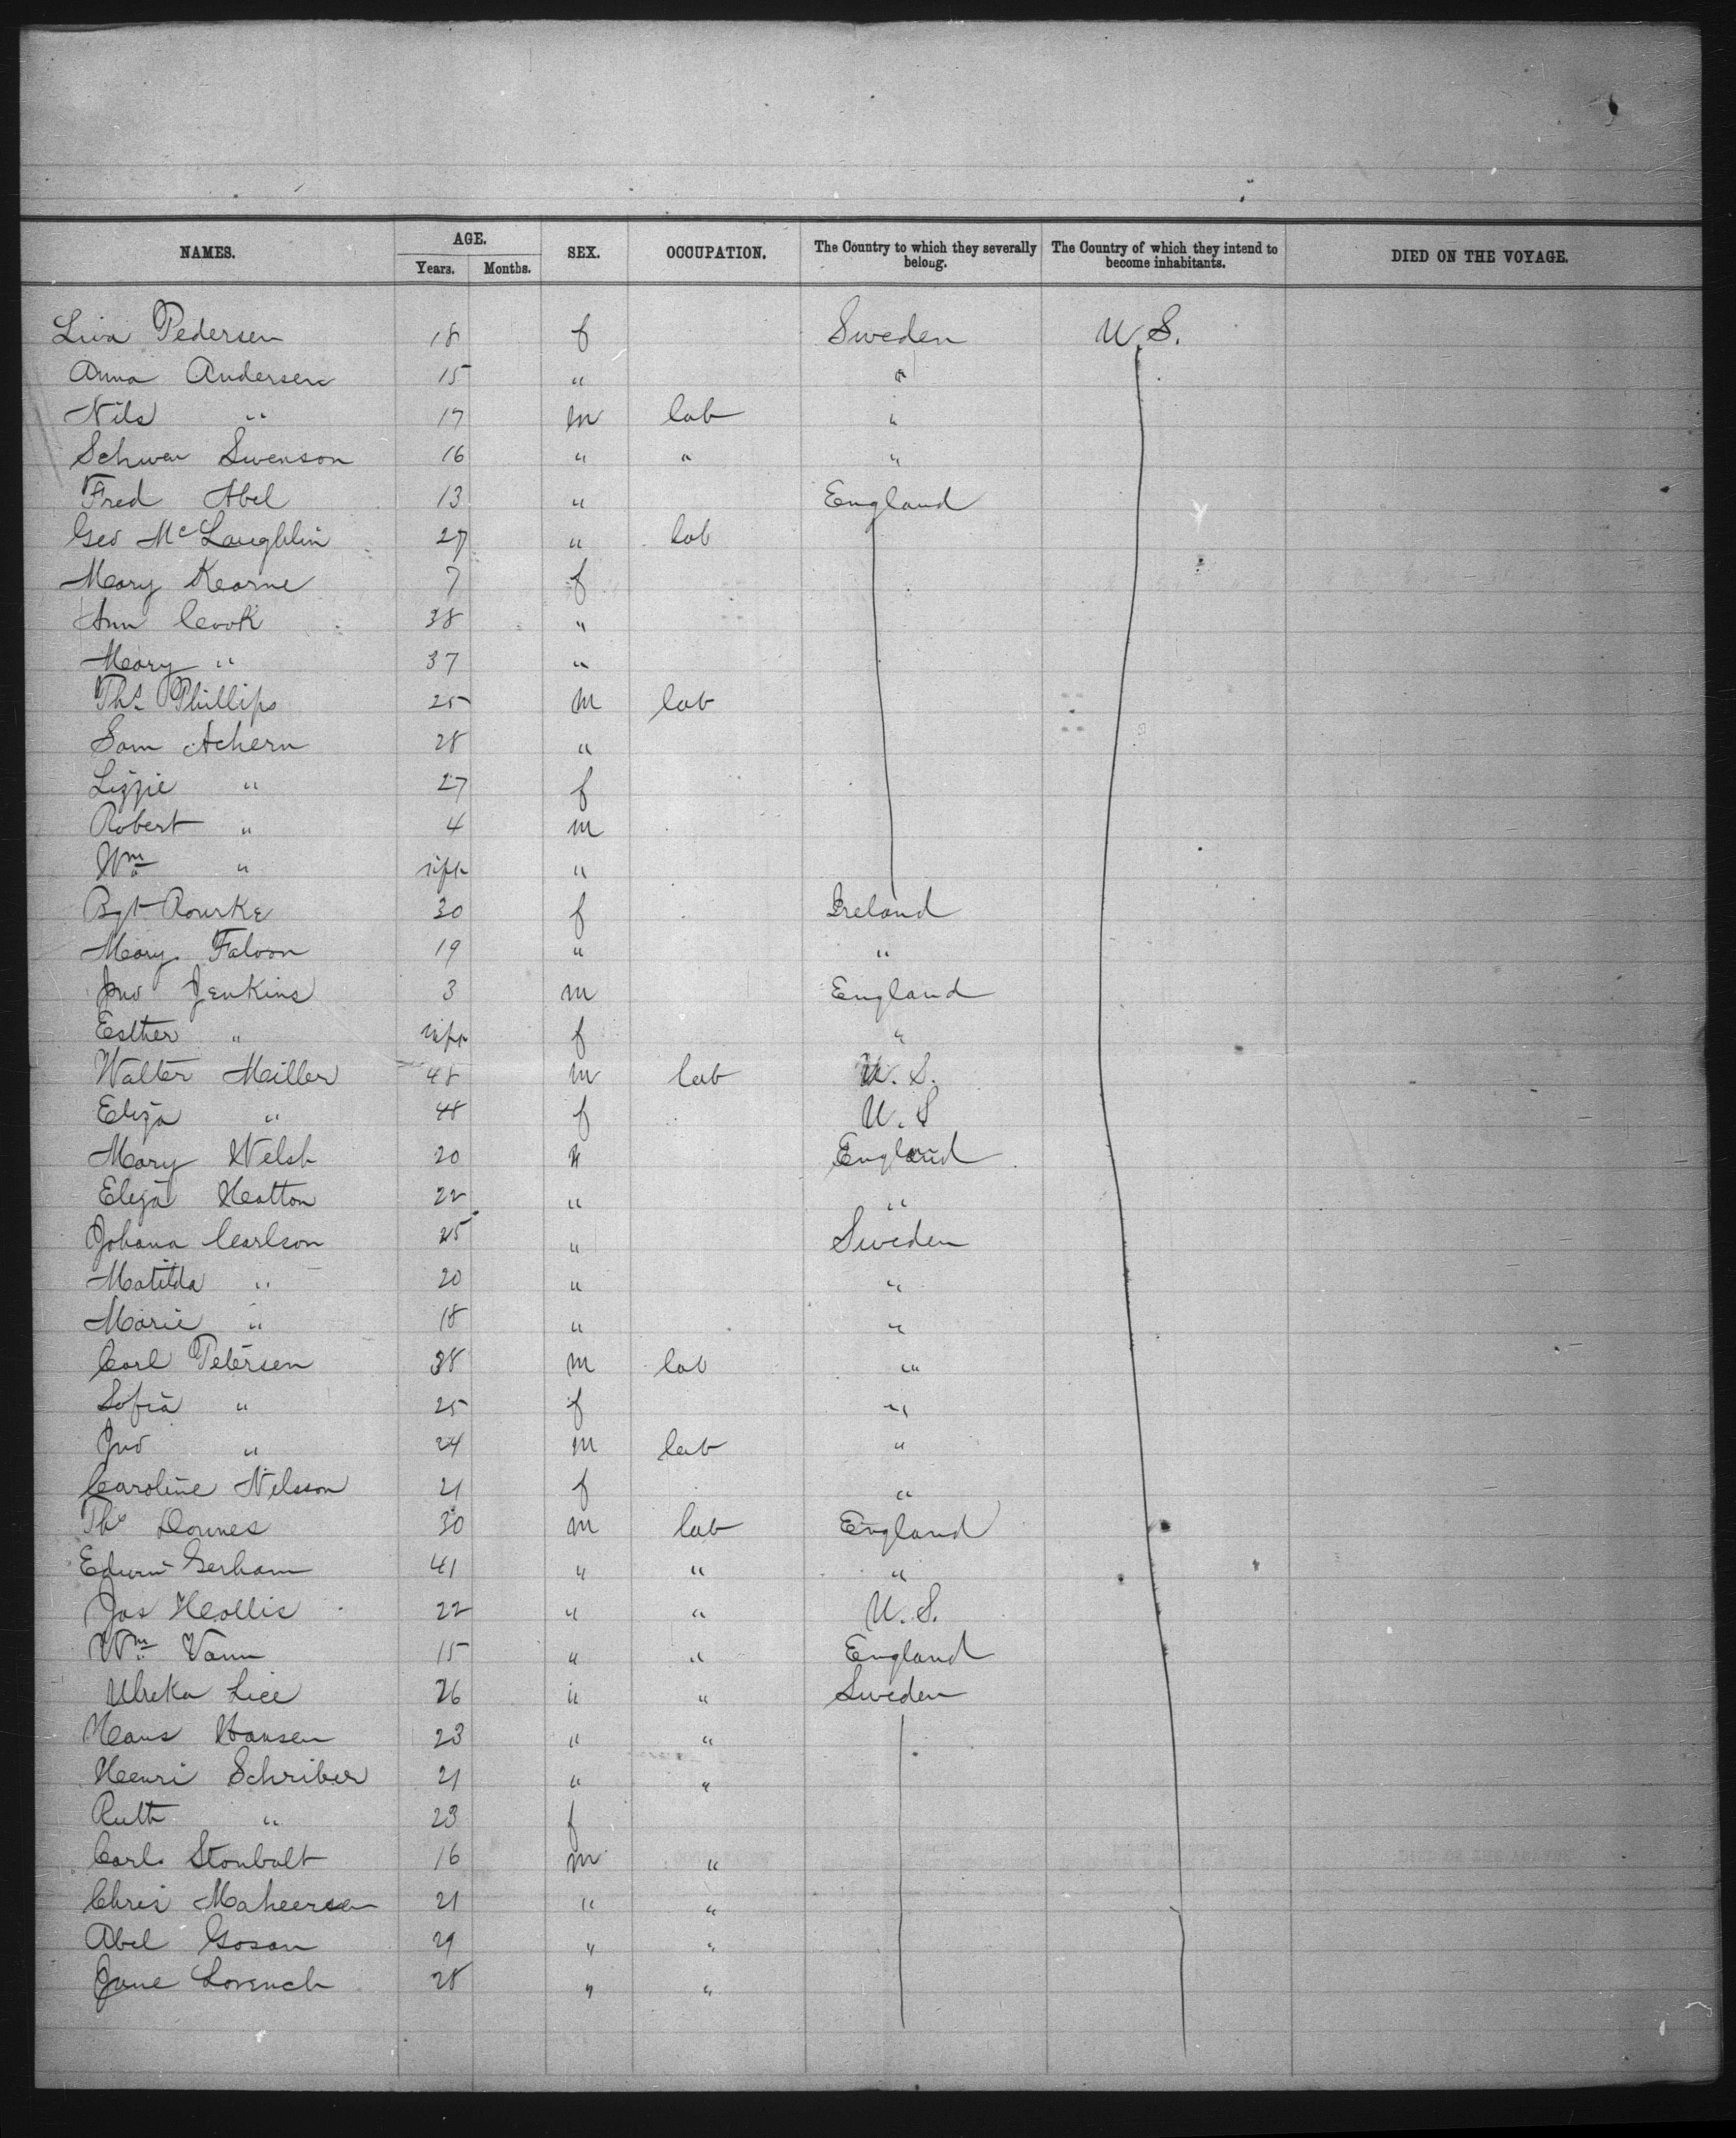 NAMES. AGE. Years. Months. SEX. OCCUPATION. The Country to which they severally belong. The Country of which they intend to become inhabitants. DIED ON THE VOYAGE.
Liva Pedersen 18 f Sweden U.S.
Anna Andersen 15 " "
Nils " 17 m lab "
Schwen Swenson 16 " " "
Fred Abel 13 " England
Geo McLaughlin 27 " lab
Mary Kearne 7 f
Ann Cook 38 "
Mary " 37 "
Ths Phillips 25 m lab
Sam Achern 28 "
Lizzie " 27 f
Robert " 4 m
Wm " inft "
Bgt Rourke 30 f Ireland
Mary Faloon 19 " "
Jno Jenkins 3 m England
Esther " inft f "
Walter Miller 48 m lab U.S.
Eliza " 48 f U.S
Mary Welsh 20 " England
Eliza Hatton 22 " "
Johana Carlson 25 " Sweden
Matilda " 20 " "
Marie " 18 " "
Carl Petersen 38 m lab "
Sofia " 25 f "
Jno " 24 m lab "
Caroline Nilsson 21 f "
Ths Downes 30 m lab England
Edwin Gerham 41 " " "
Jos Hollis 22 " " U.S.
Wm Vann 15 " " England
Ulreka Lice 26 " " Sweden
Hans Hansen 23 " "
Henri Schriber 21 " "
Ruth " 23 f
Carl Stonbalt 16 m "
Chris Maheersen 21 " "
Abel Gosan 29 " "
Jane Lorench 28 " "